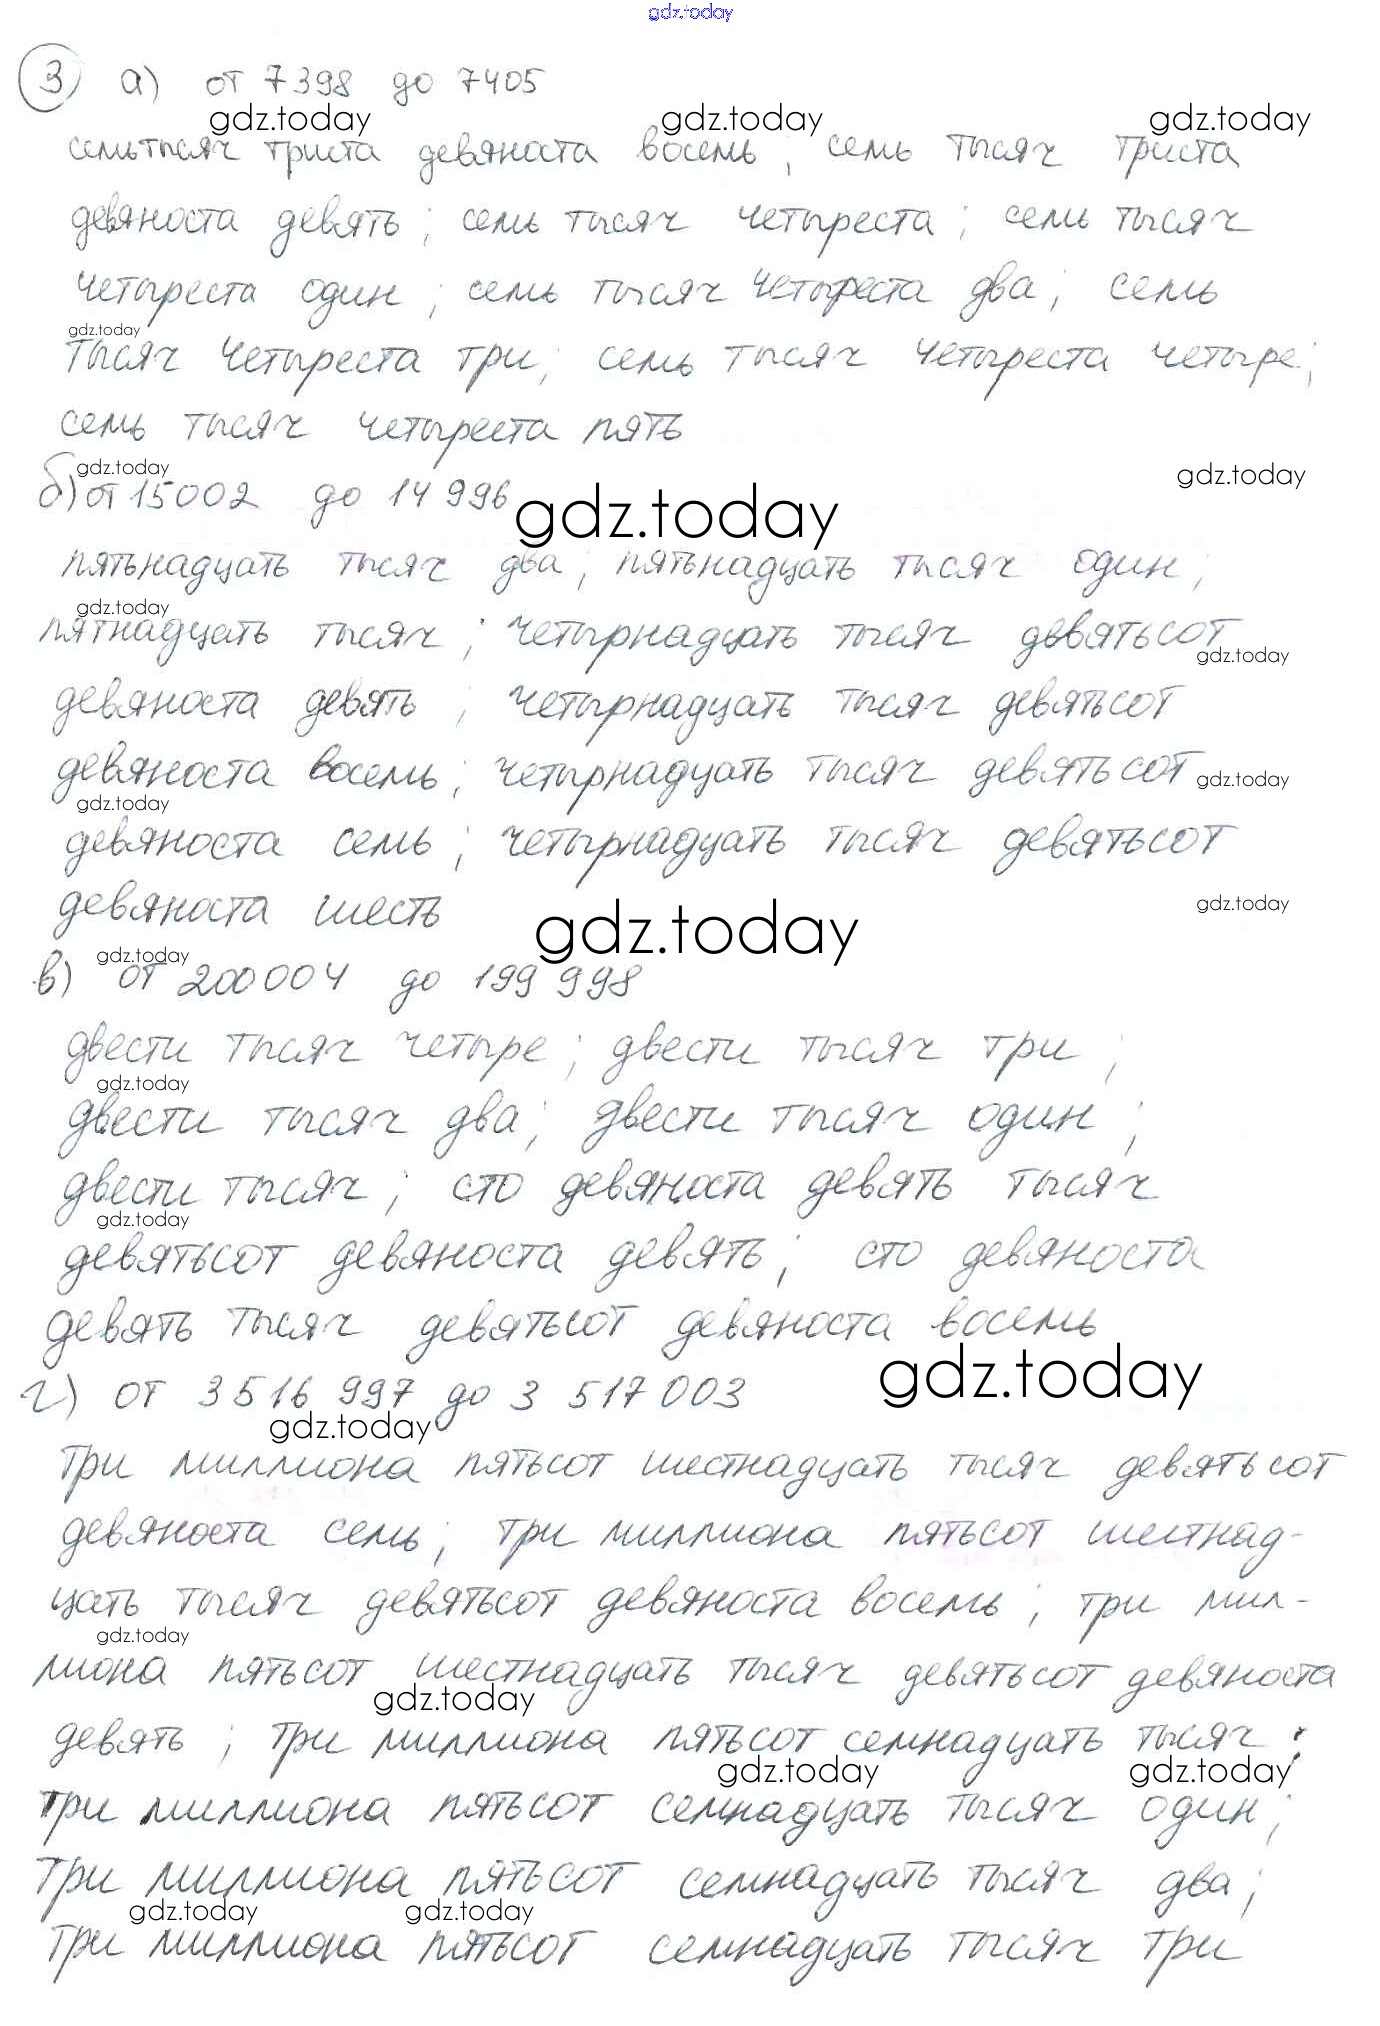 gdz.today
3 а) от 7398 до 7405
gdz.today gdz.today gdz.today
семь тысяч триста девяноста восемь; семь тысяч триста
девяноста девять; семь тысяч четыреста; семь тысяч
четыреста один; семь тысяч четыреста два; семь
gdz.today
тысяч четыреста три; семь тысяч четыреста четыре;
семь тысяч четыреста пять
gdz.today gdz.today
б) от 15002 до 14 996
gdz.today
пятьнадцать тысяч два; пятьнадцать тысяч один;
gdz.today
пятнадцать тысяч; четырнадцать тысяч девятьсот
gdz.today
девяноста девять; четырнадцать тысяч девятьсот
девяноста восемь; четырнадцать тысяч девятьсот
gdz.today gdz.today
девяноста семь; четырнадцать тысяч девятьсот
девяноста шесть
gdz.today gdz.today
gdz.today
в) от 200004 до 199 998
двести тысяч четыре; двести тысяч три;
gdz.today
двести тысяч два; двести тысяч один;
двести тысяч; сто девяноста девять тысяч
gdz.today
девятьсот девяноста девять; сто девяноста
девять тысяч девятьсот девяноста восемь
г) от 3 516 997 до 3 517 003
gdz.today
gdz.today
три миллиона пятьсот шестнадцать тысяч девятьсот
девяноста семь; три миллиона пятьсот шестнад-
цать тысяч девятьсот девяноста восемь; три мил-
gdz.today
лиона пятьсот шестнадцать тысяч девятьсот девяноста
gdz.today
девять; три миллиона пятьсот семнадцать тысяч;
gdz.today gdz.today
три миллиона пятьсот семнадцать тысяч один;
три миллиона пятьсот семнадцать тысяч два;
gdz.today gdz.today
три миллиона пятьсот семнадцать тысяч три